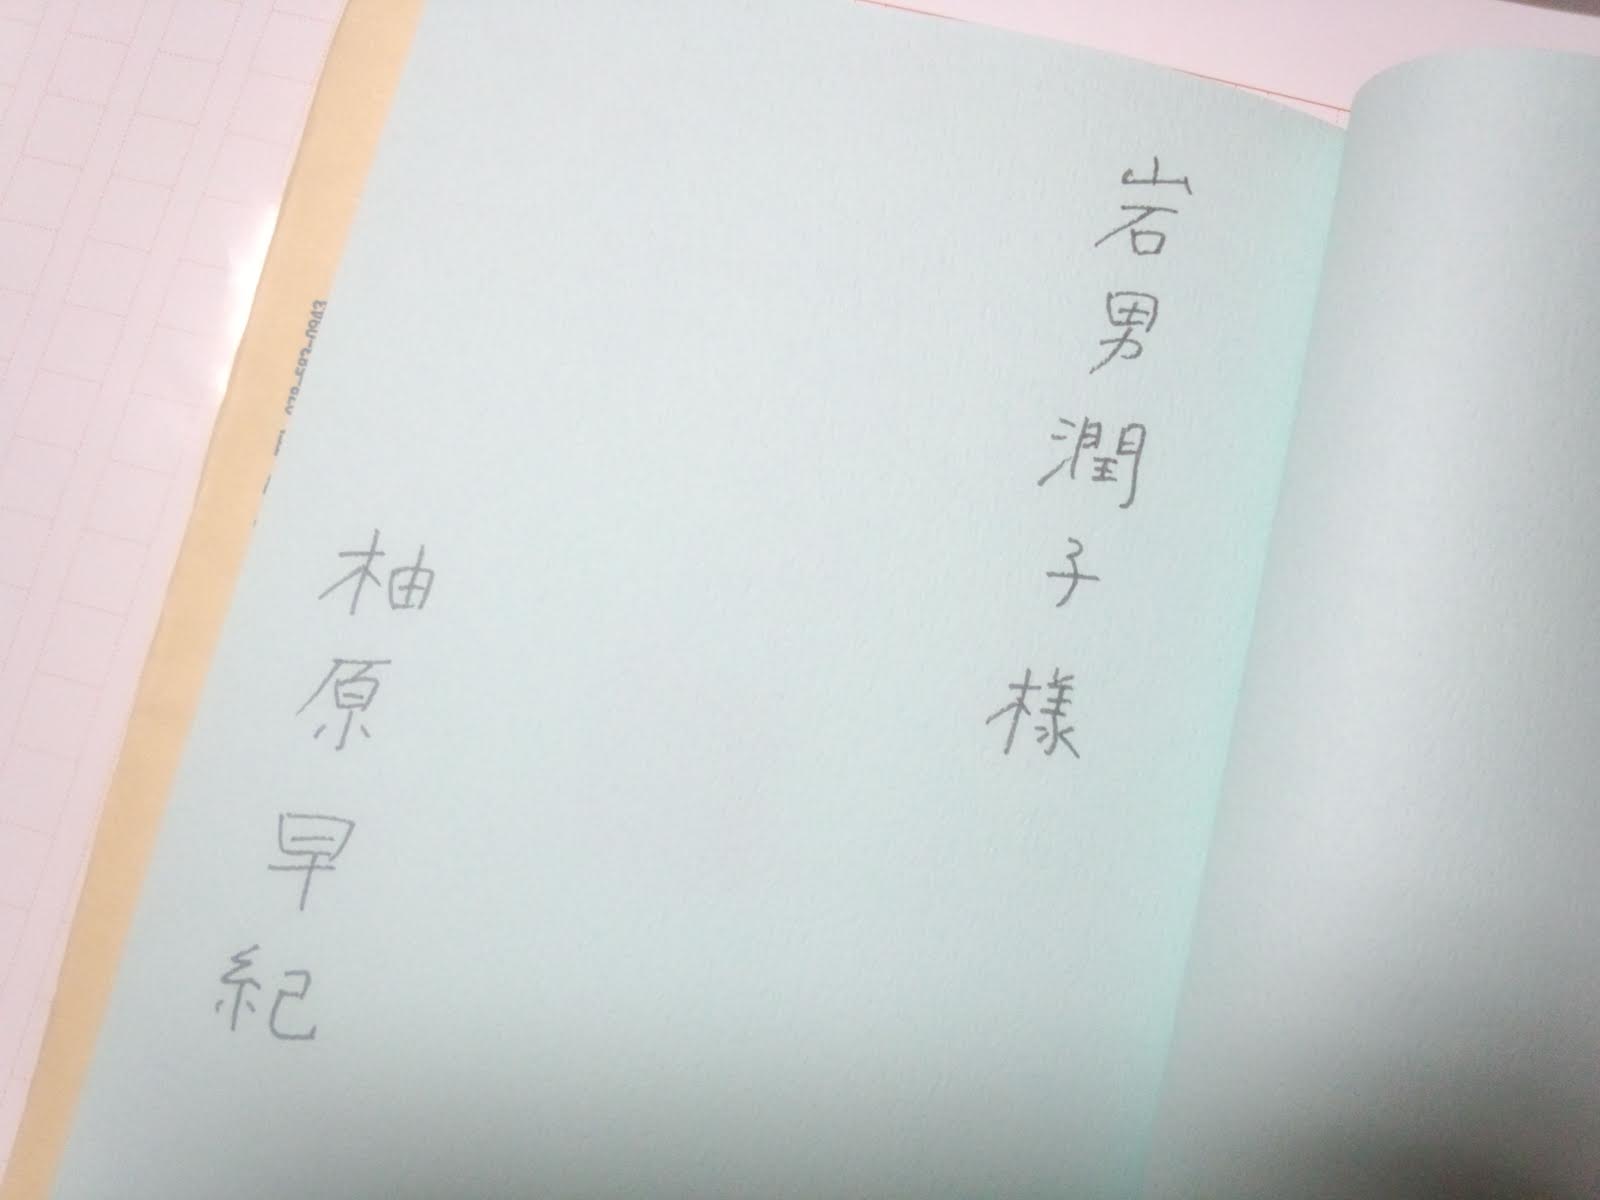 岩男潤子様
柚原早紀